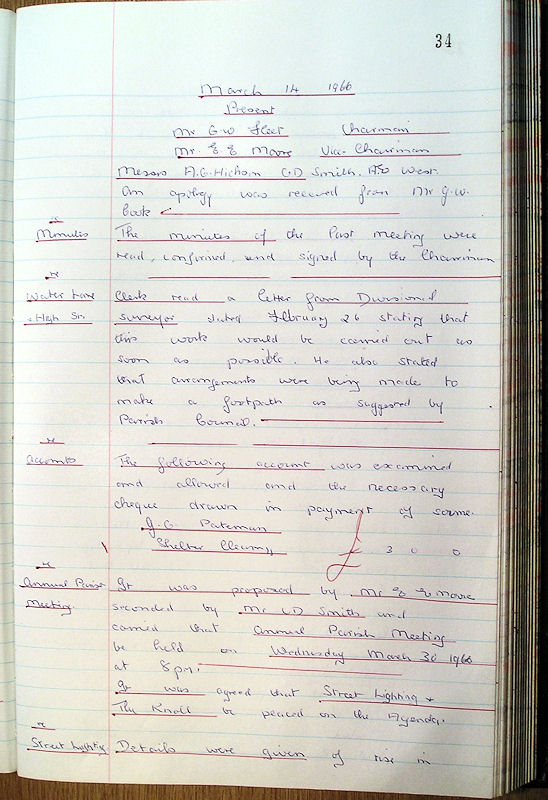 34
March 14 1966
Present
Mr G.W Fleet Chairman
Mr. E E Moore Vice Chairman
Messrs A.G. Hickson C.D Smith. A.W West.
An apology was received from Mr G.W.
Cook
re
Minutes
The minutes of the last meeting were
read, confirmed, and signed by the Chairman
re
Water Lane
+ High St.
Clerk read a letter from Divisional
surveyor dated February 26 stating that
this work would be carried out as
soon as possible. He also stated
that arrangements were being made to
make a footpath as suggested by
Parish Council.
re
accounts
The following account was examined
and allowed and the necessary
cheque drawn in payment of same.
J.G. Pateman
Shelter Cleaning £ 3 0 0
re
Annual Parish
Meeting.
It was proposed by Mr E E Moore
seconded by Mr CD Smith and
carried that Annual Parish Meeting
be held on Wednesday March 30 1966
at 8pm.
It was agreed that Street Lighting +
The Knoll be placed on the Agenda.
re
Street Lighting
Details were given of rise in